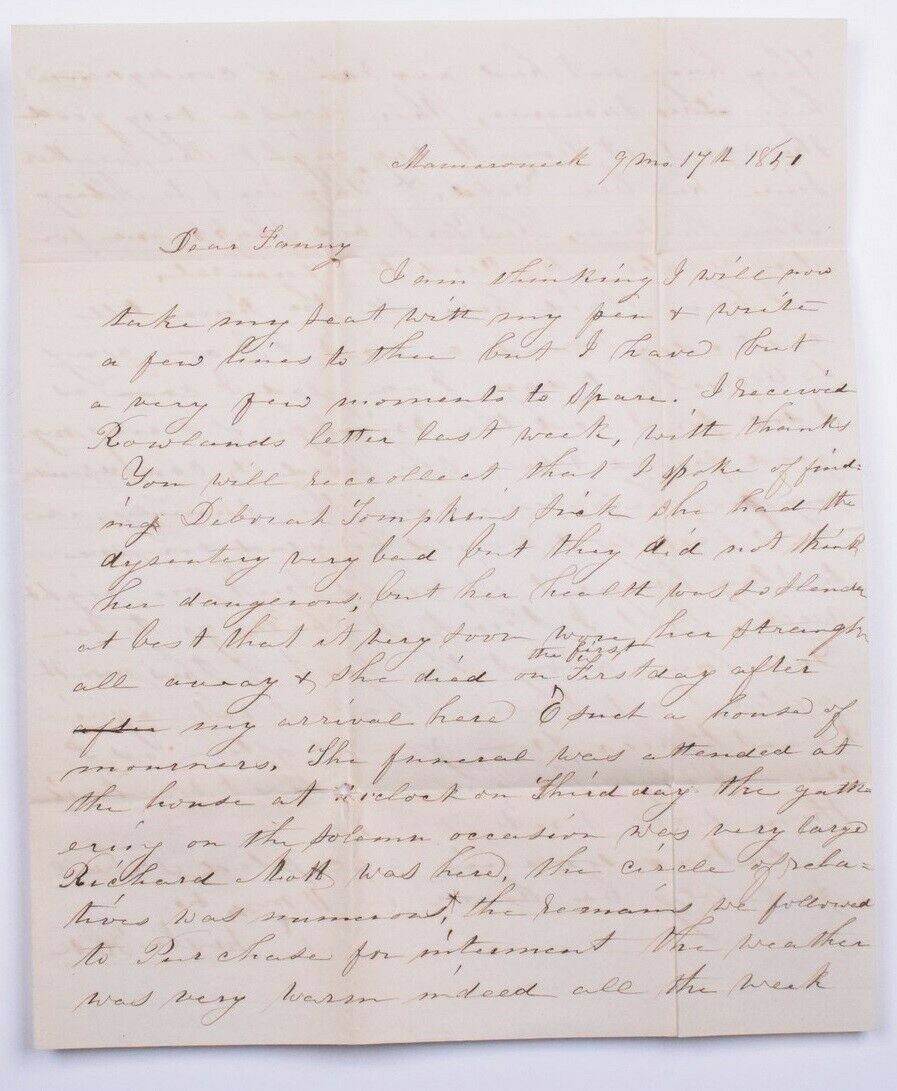 Mamaroneck 9 mo 17th 18
Dear Fanny
I am thinking I will now
take my seat with my pen & write
a few lines to thee but I have but
a very few moments to spare. I received
Rowlands letter last week, with thanks
You will reccollect that I spoke of find=
ing Deborah Tompkins sick she had the
dysentery very bad but they did not think
her dangerous, but her health was so slender
at best that it very soon wore her strength
the first
all away & she died on Firstday after
after my arrival here O such a house of
mourners. The funeral was attended at
the house at oclock on Third day the gath
ering on the solamn occasion was very large
Richard Mott was here, the circle of rela=
tives was numerous, the remains we followed
to Purchase for interment the weather
was very warm indeed all the week